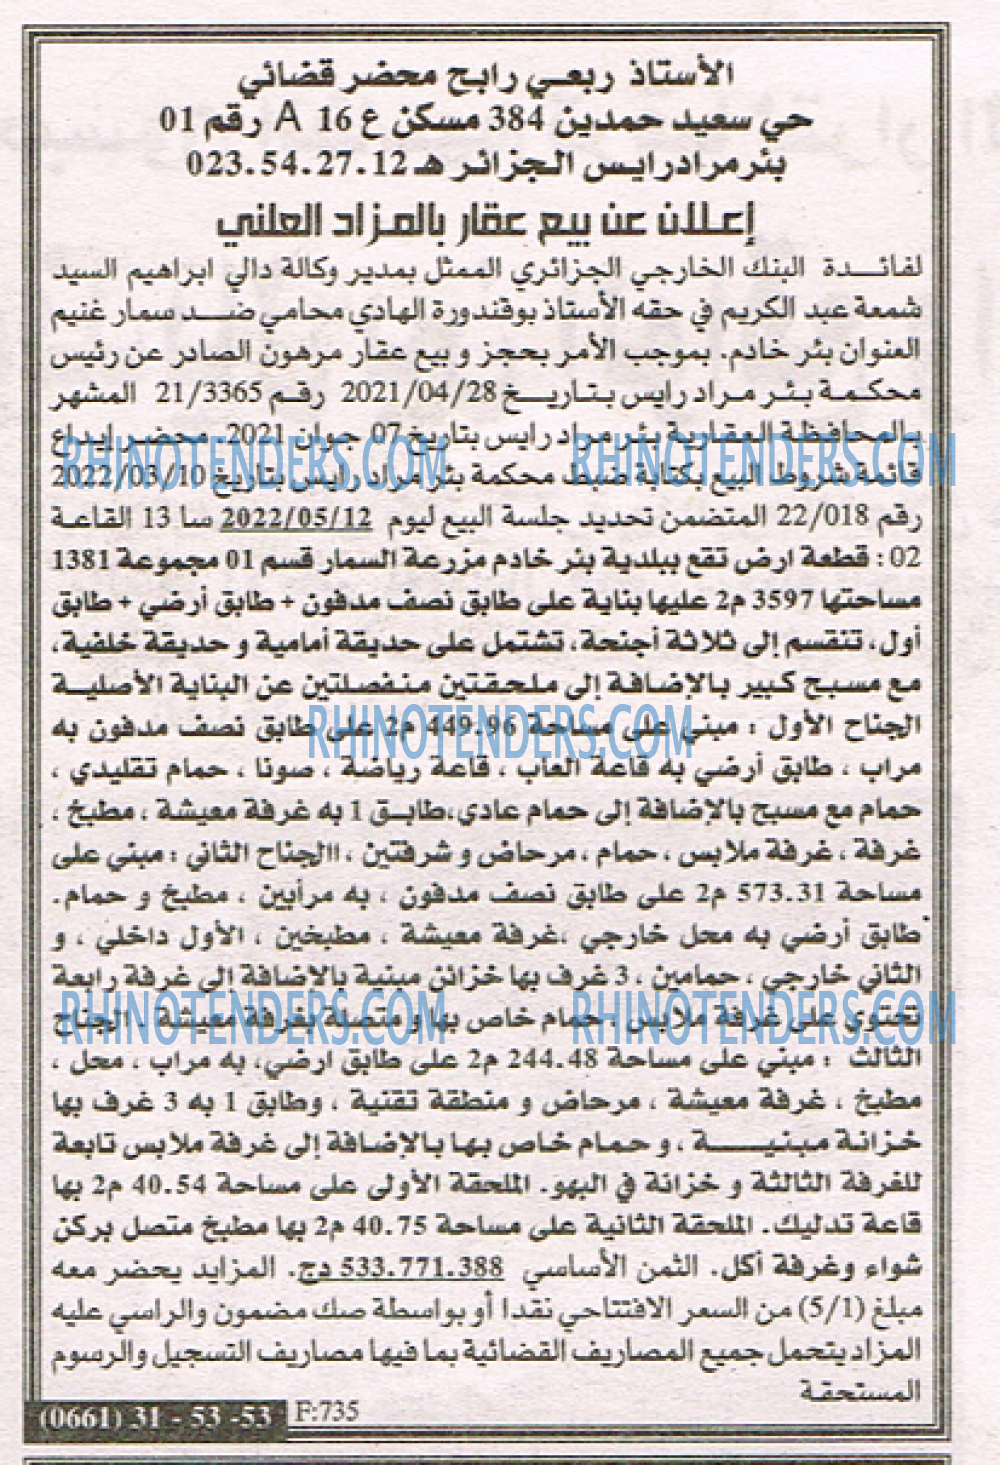 الأستاذ ربعي رابح محضر قضائي
حي سعيد حمدين 384 مسكن ع 16 A رقم 01
بئر مراد رايس الجزائر هـ 023.54.27.12
إعلان عن بيع عقار بالمزاد العلني
لفائـــدة البنك الخارجي الجزائري الممثل بمدير وكالة دالي ابراهيم السيد
شمعة عبد الكريم في حقه الأستاذ بوقندورة الهادي محامي ضــد سمار غنيم
العنوان بئر خادم. بموجب الأمر بحجز و بيع عقار مرهون الصادر عن رئيس
محكمـة بئـر مـراد رايس بـتـاريـــخ 2021/04/28 رقـم 21/3365 المشهر
بالمحافظة العقارية بئر مراد رايس بتاريخ 07 جوان 2021 محضر إيداع
RHINOTENDERS.COM RHINOTENDERS.COM
قائمة شروط البيع بكتابة ضبط محكمة بئر مراد رايس بتاريخ 2022/03/10
رقم 22/018 المتضمن تحديد جلسة البيع ليوم 2022/05/12 سا 13 القاعـة
02 : قطعة ارض تقع ببلدية بئر خادم مزرعة السمار قسم 01 مجموعة 1381
مساحتها 3597 م2 عليها بناية على طابق نصف مدفون + طابق أرضي + طابق
أول، تنقسم إلى ثلاثة أجنحة، تشتمل على حديقة أمامية و حديقة خلفية،
مـع مسبـح كـبيـر بـالإضافـة إلى ملـحـقـتـين مـنـفـصلتـين عن البناية الأصليــة
الجناح الأول : مبني على مساحة 449.96 م2 على طابق نصف مدفون به
RHINOTENDERS.COM
مراب ، طابق أرضي به قاعة العاب ، قاعة رياضة ، صونا ، حمام تقليدي ،
حمام مع مسبح بالإضافة إلى حمام عادي،طابـق 1 به غرفة معيشة ، مطبخ ،
غرفة ، غرفة ملابس ، حمام ، مرحاض و شرفتين ، االجناح الثاني : مبني على
مساحة 573.31 م2 على طابق نصف مدفون ، به مرأبين ، مطبخ و حمام.
طابق أرضي به محل خارجي ،غرفة معيشة ، مطبخين ، الأول داخلي ، و
الثاني خارجي ، حمامين ، 3 غرف بها خزائن مبنية بالإضافة إلى غرفة رابعة
تحتوي على غرفة ملابس ، حمام خاص بها و متصلة بغرفة معيشة . الجناح
RHINOTENDERS.COM RHINOTENDERS.COM
الثالث : مبني على مساحة 244.48 م2 على طابق ارضي، به مراب ، محل ،
مطبخ ، غرفة معيشة ، مرحاض و منطقة تقنية ، وطابق 1 به 3 غرف بها
خـزانـة مـبـنـيـــــة ، و حـمـام خـاص بـهـا بـالإضـافـة إلى غرفة ملابس تابعة
للغرفة الثالثة و خزانة في البهو. الملحقة الأولى على مساحة 40.54 م2 بها
قاعة تدليك. الملحقة الثانية على مساحة 40.75 م2 بها مطبخ متصل بركن
شواء وغرفة أكل. الثمن الأساسي 533.771.388 دج. المزايد يحضر معه
مبلغ (5/1) من السعر الافتتاحي نقدا أو بواسطة صك مضمون والراسي عليه
المزاد يتحمل جميع المصاريف القضائية بما فيها مصاريف التسجيل والرسوم
المستحقة
F:735
(0661) 31 - 53 -53